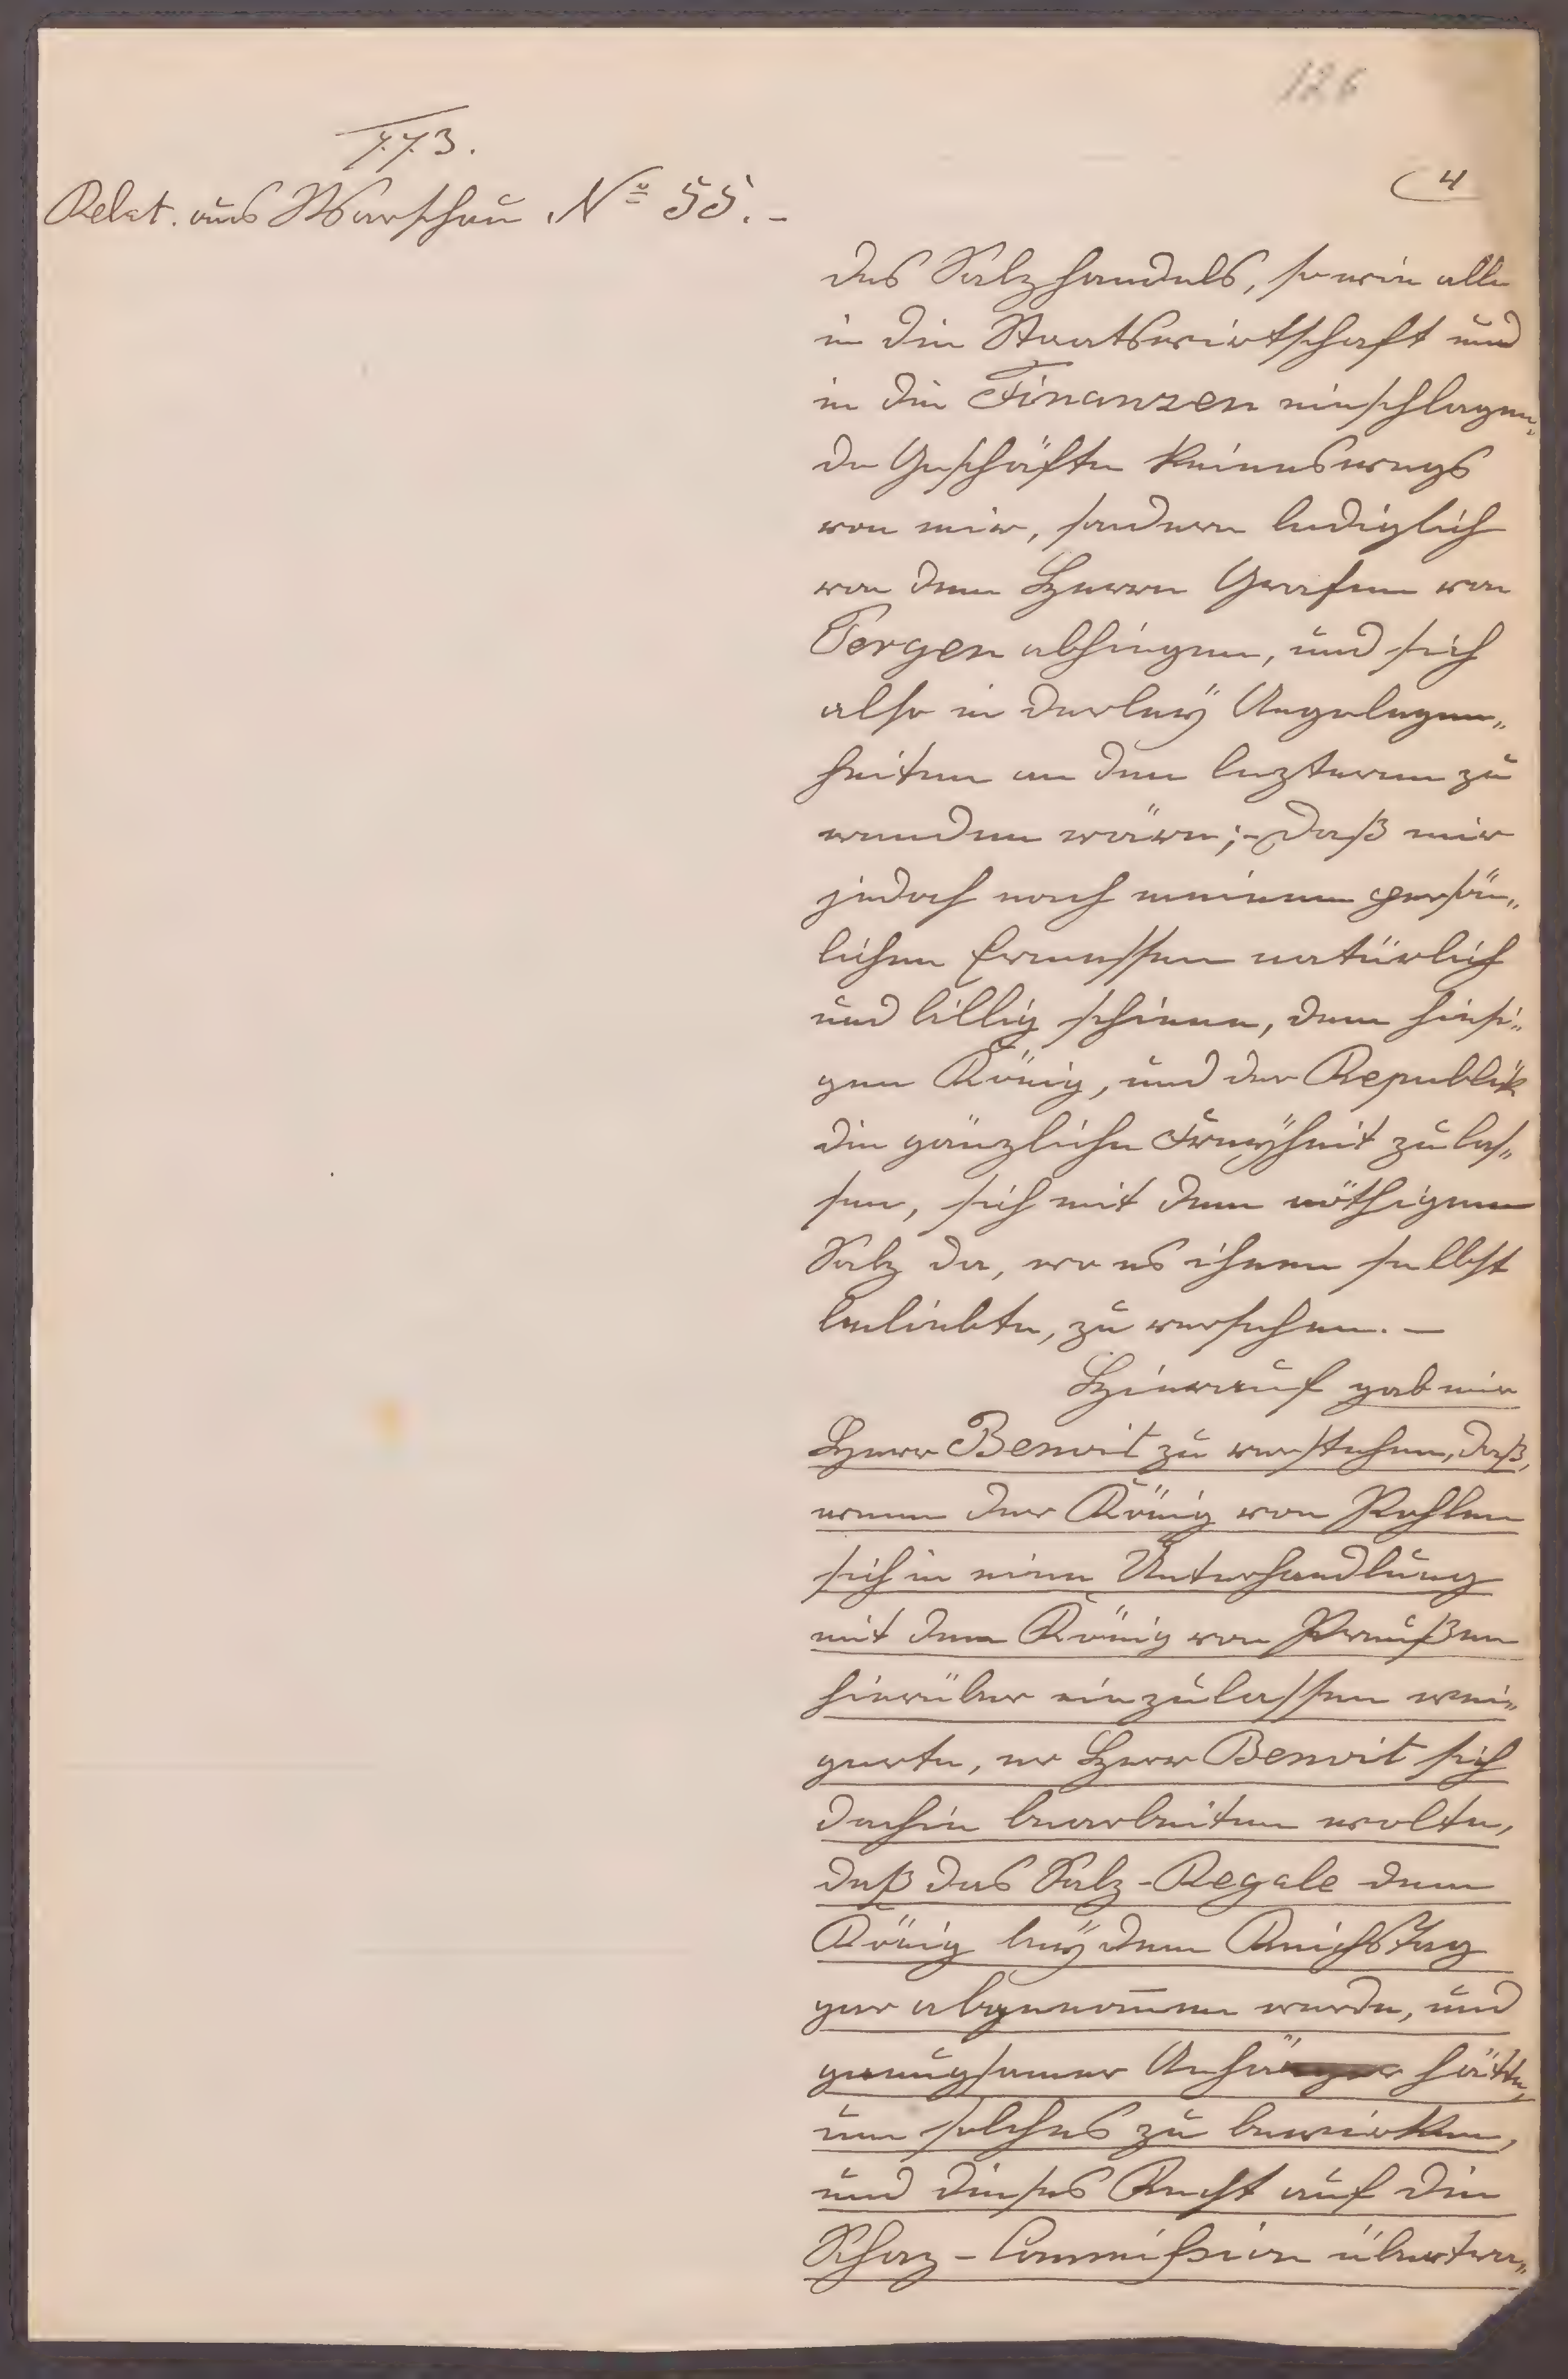 126
773.
4
Relat. aus Warschau No 55.-
des Salzhandels, so wie alle
in die Staatswirtschaft und
in die Finanzen einschlagen„
de Geschäfte keineswegs
von mir, sondern lediglich
von dem Herrn Grafen von
Pergen abhiengen, und sich
also in derleÿ Angelegen„
heiten an den lezteren zu
wenden wäre;- daß mir
jedoch nach meinem persön„
lichen Ermessen natürlich
und billig schiene, dem hiesi„
gen König, und der Republik
die gänzliche Freÿheit zu las„
sen, sich mit dem nöthigen
Salz da, wo es ihnen selbst
beliebte, zu versehen. —
Hierauf gab mir
Herr Benoit zu verstehen, daß,
wenn der König von Pohlen
sich in eine Unterhandlung
mit dem König von Preußen
hierüber einzulassen wei„
gerte, er Herr Benoit sich
dahin bearbeiten wolte,
daß das Salz-Regale dem
König beÿ dem Reichstag
gar abgenom̄en werde, und
genugsamer Anhänger hätte,
um solches zu bewirken,
und dieses Recht auf die
Schaz-Commission übertra„